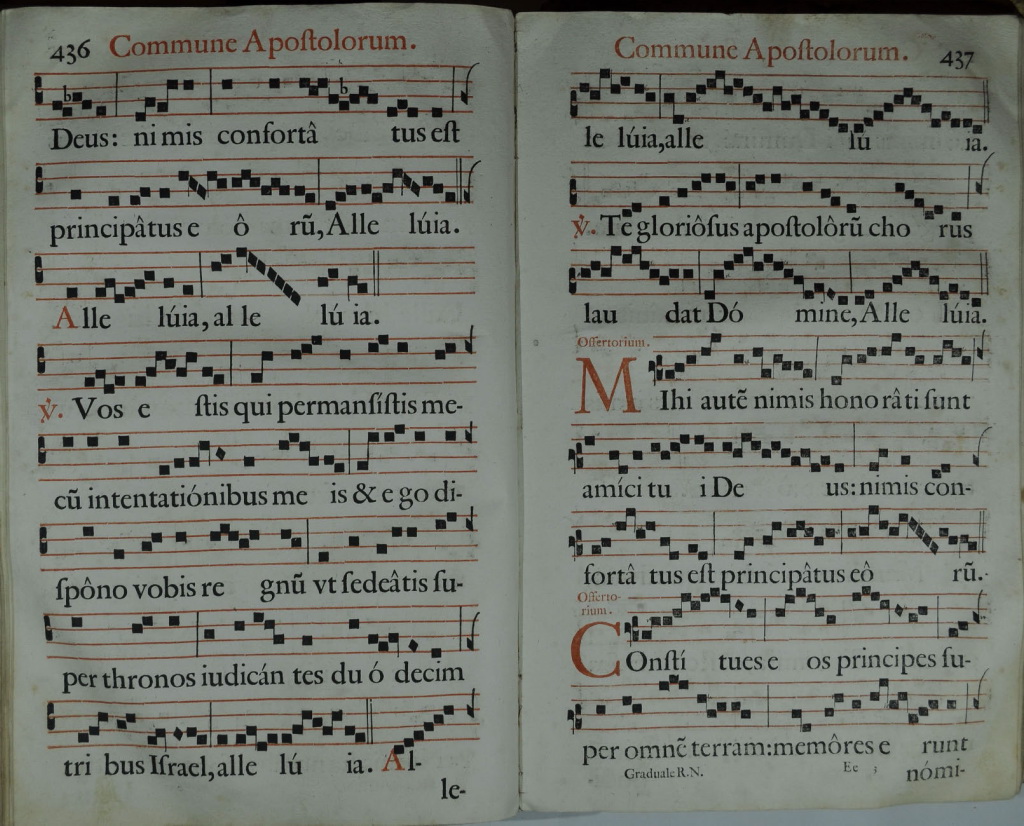 436 Commune Apoſtolorum.
Deus: nimis confortâ tus eſt
principâtus e ô rũ, Alle lúia.
Alle lúia, al le lú ia.
℣. Vos e ſtis qui permanſiſtis me-
cũ in tentatiónibus me is & e go di-
ſpôno vobis re gnũ vt ſedeâtis ſu-
per thronos iudicán tes du ó decim
tri bus Iſrael, alle lú ia. Al-
le-
Commune Apoſtolorum. 437
le lúia, alle lu ia.
℣. Te glorióſus apoſtolôrũ cho rus
lau dat Dó mine, Alle lúia.
Offertorium.
MIhi autẽ nimis hono râ ti ſunt
amíci tu i De us: nimis con-
fortâ tus eſt principâtus eô rũ.
Offerto-
rium.
COnſtí tues e os principes ſu-
per omnẽ terram: memôres e runt
Graduale R.N. Ee ; nómi-